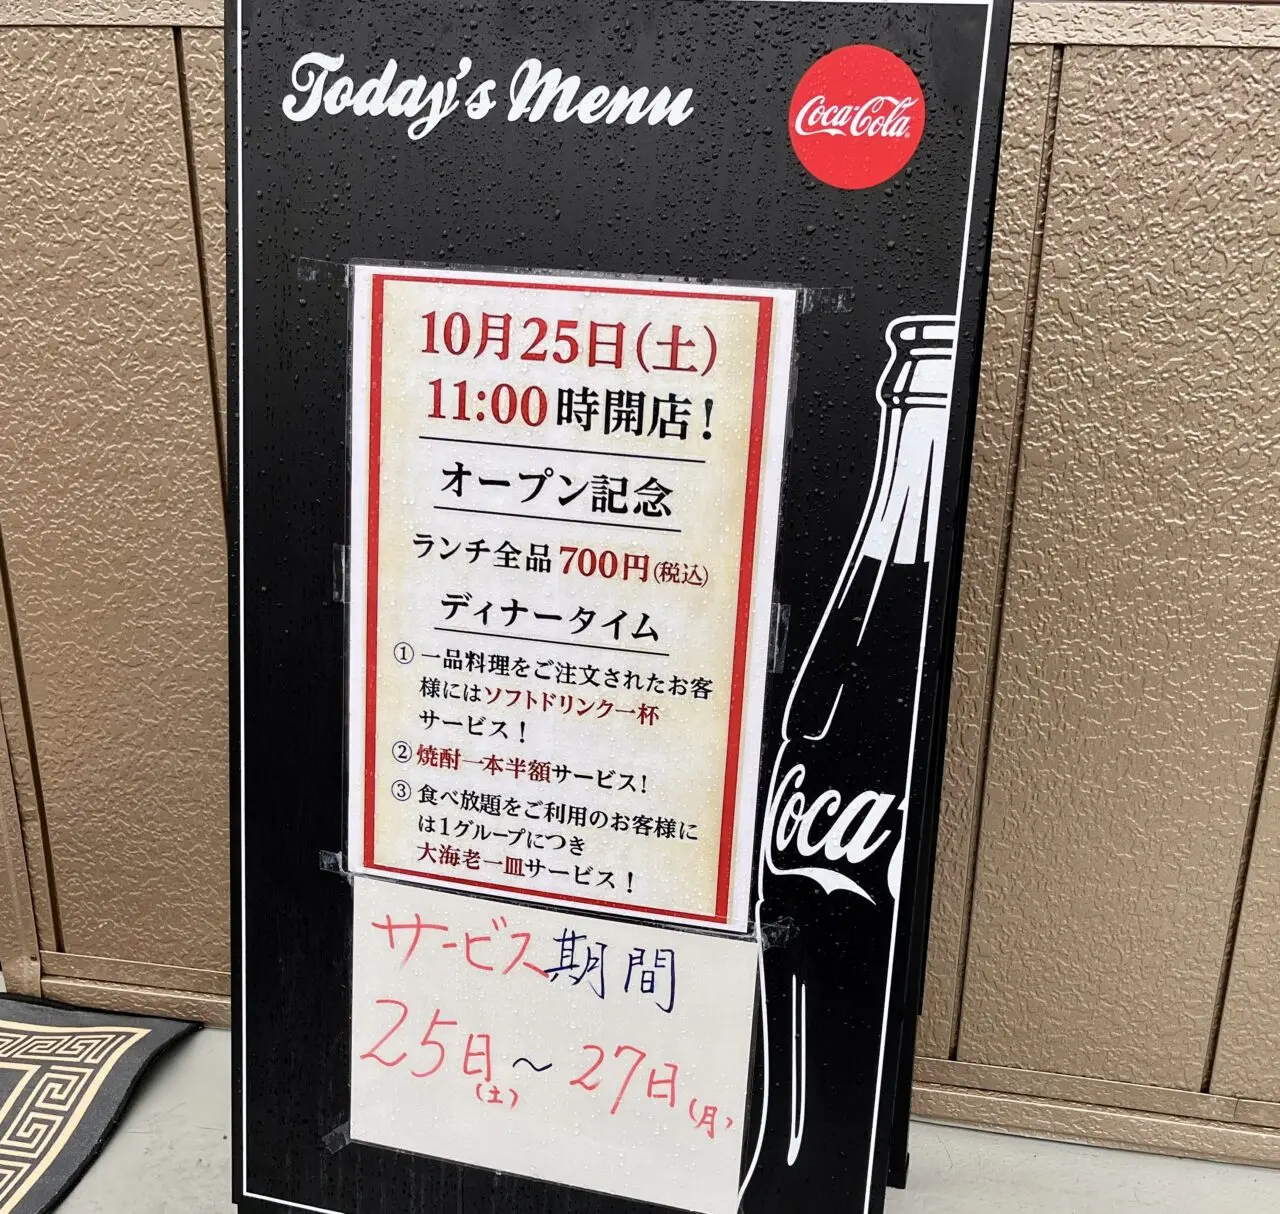 Today's Menu
Coca-Cola
10月25日(土)
11:00時開店!
オープン記念
ランチ全品700円(税込)
ディナータイム
① 一品料理をご注文されたお客
様にはソフトドリンク一杯
サービス!
② 焼酎一本半額サービス!
③ 食べ放題をご利用のお客様に
は1グループにつき
大海老一皿サービス!
Coca
サービス期間
25日(土)~27日(月)